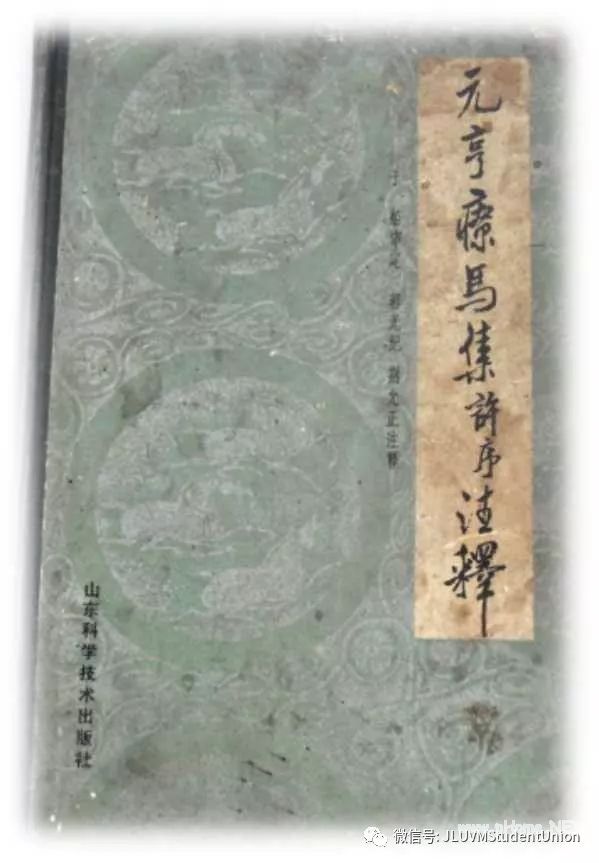 元亨療馬集許序注釋
郭光纪 荆允正注释
山东科学技术出版社
微信号: JLUVMStudentUnion